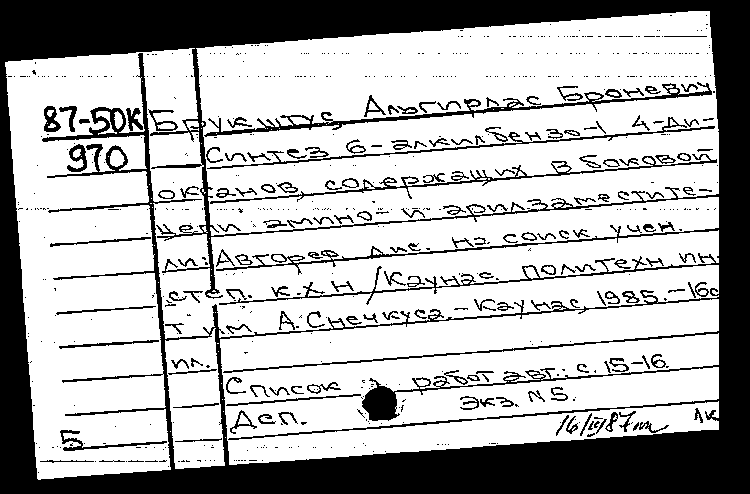 87-50К Брукштус, Альгирдас Броневич
970 Синтез 6-алкилбензо-1, 4-ди-
оксанов, содержащих в боковой
цепи амино- и арилзаместите-
ли: Автореф. дис. на соиск. учен.
степ. к.х.н /Каунас. политехн. ин-
т им. А. Снечкуса. - Каунас, 1985. - 16с
ил.
Список работ авт.: с. 15-16.
Деп. Экз. N 5.
5 16/IV 87 ЛК